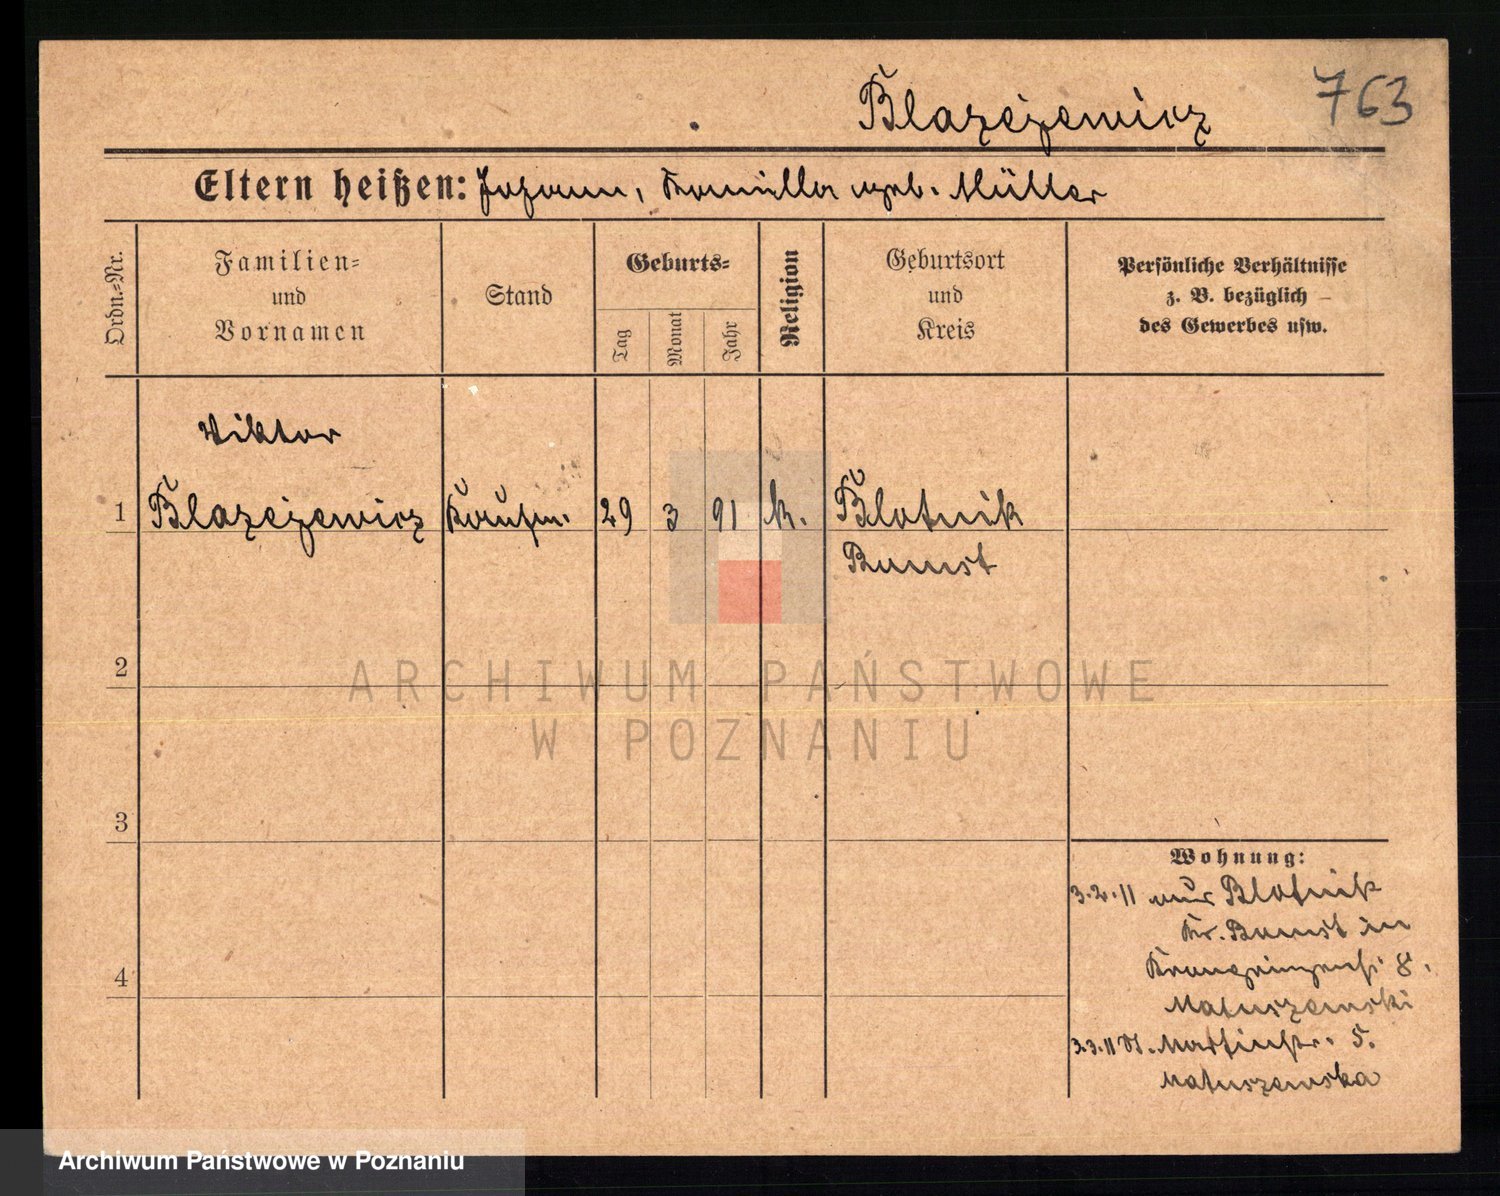 763
Blazejewicz
Eltern heißen: Johann, Kamilla geb. Müller
Ordn.=Nr.
Familien=
und
Vornamen
Stand
Geburts=
Tag
Monat
Jahr
Religion
Geburtsort
und
Kreis
Persönliche Verhältnisse
z. B. bezüglich
des Gewerbes usw.
Viktor
1 Blazejewicz Kaufm. 29 3 91 k. Blotnik
Bomst
2
3
4
Wohnung:
3.2.11 aus Blotnik
Kr. Bomst in
Kronprinzenst. 8.
Matuszewski
3.3.11 St. Martinstr. 5.
Matuszewska
ARCHIWUM PAŃSTWOWE
W POZNANIU
Archiwum Państwowe w Poznaniu